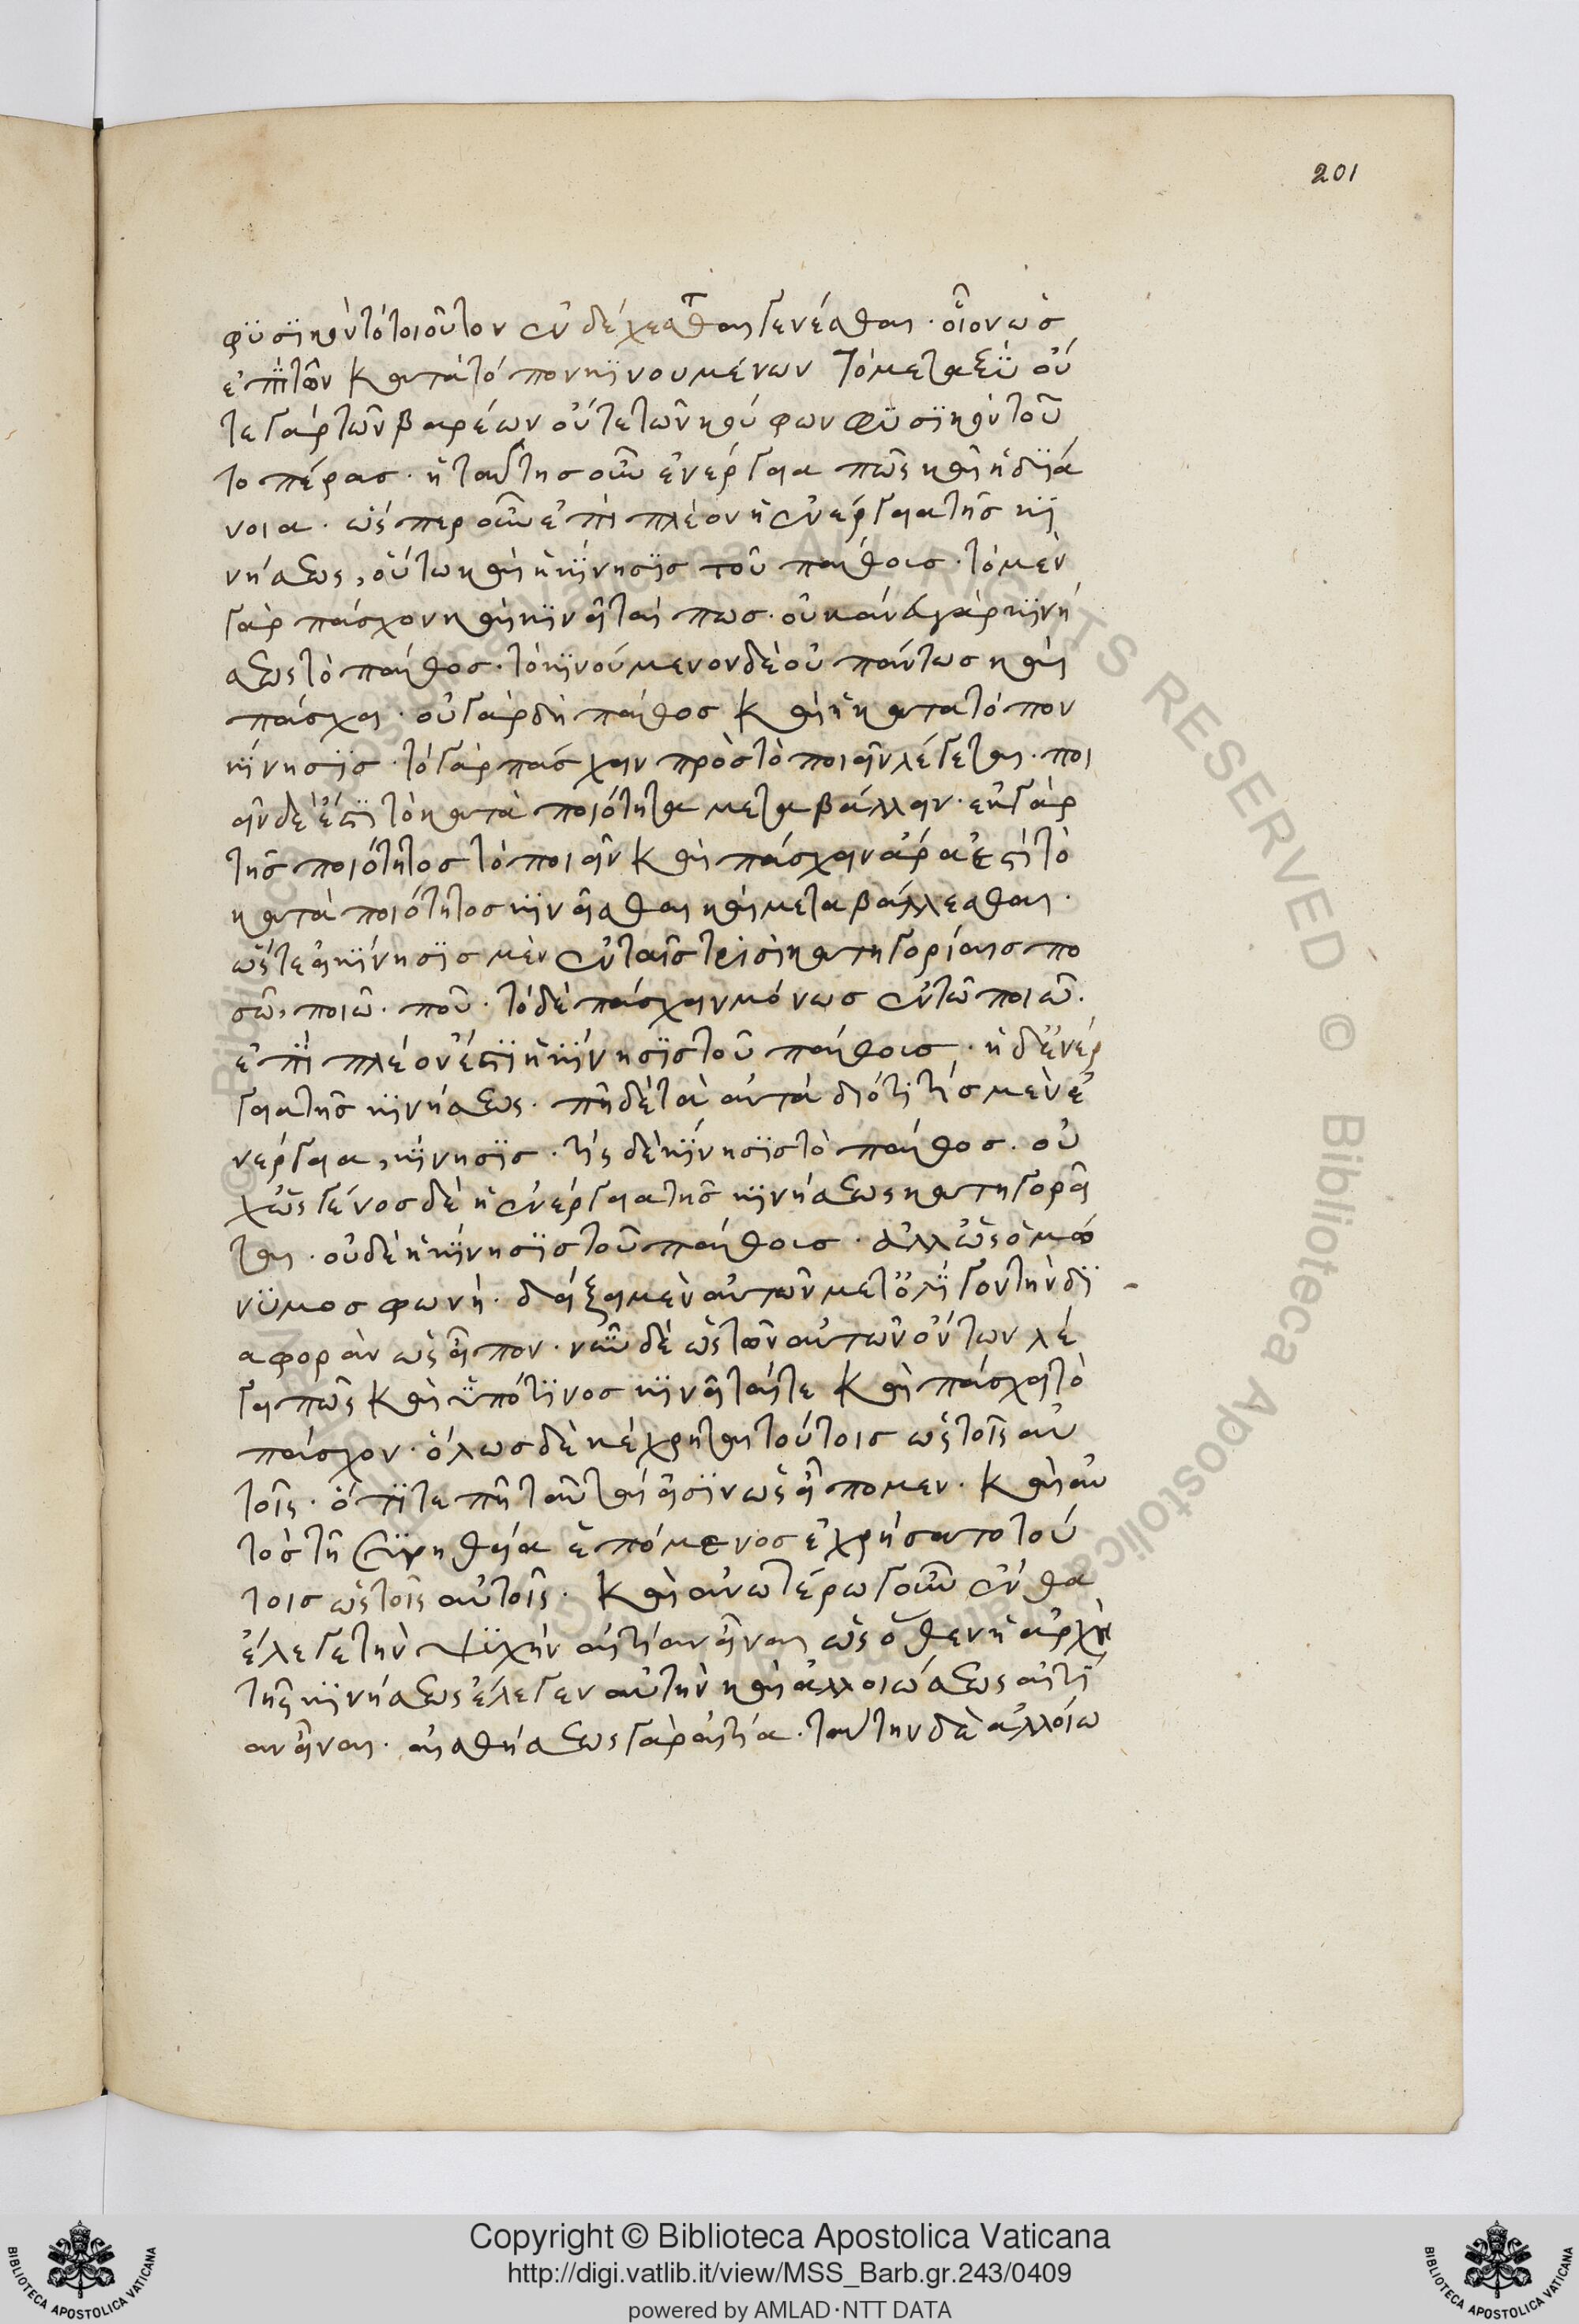 201
φϋσϊκὸν τὸ τοιοῦτον ἐνδέχεσθαι γενέσθαι · οἷον ὡς
ἐπϊ τῶν κατὰ τόπον κϊνουμένων τὸ μεταξϋ οὔ
τε γὰρ τῶν βαρέων οὔτε τῶν κούφων φϋσϊκὸν τοῦ
το πέρας · ἡ ταύτης οὖν ἐνέργεια πῶς καὶ ἡ δϊά
νοια · ὥσπερ οὖν ἐπὶ πλέον ἡ ἐνέργεια τῆς κϊ
νήσεως, οὕτω καὶ ἡ κίνησϊς τοῦ πάθους · τὸ μὲν
γὰρ πάσχον καὶ κϊνεῖταί πως · οὐκ ἄνευ γὰρ κϊνή
σεως τὸ πάθος · τὸ κϊνούμενον δὲ οὐ πάντως καὶ
πάσχει · οὐ γὰρ δὴ πάθος καὶ ἡ κατα τόπον
κίνησϊς · τὸ γὰρ πάσχειν πρὸς τὸ ποιεῖν λέγεται · ποι
εῖν δὲ ἐστϊ τὸ κατὰ ποιότητα μεταβάλλειν · ἐκ γὰρ
τῆς ποιότητος τὸ ποιεῖν καὶ πάσχειν ἄρα ἐστὶ τὸ
κατὰ ποιότητος κϊνεῖσθαι καὶ μεταβάλλεσθαι ·
ὥστε εἰ κίνησϊς μὲν ἐν ταῖς τρϊσὶ κατηγορίαις πο
σῶ, ποιῶ · ποῦ · τὸ δὲ πάσχειν μόνως ἐν τῶ ποιῶ ·
ἐπϊ πλέον ἐστϊ ἡ κίνησϊς τοῦ πάθους · ἡ δ' ἐνέρ
γεια τῆς κϊνήσεως · πῆ δὲ τὰ αυτά διότι τίς μὲν ἐ
νέργεια, κίνησϊς · τίς δὲ κίνησϊς τὸ πάθος · οὐ
χ ὡς γένος δὲ ἡ ἐνέργεια τῆς κϊνήσεως κατηγορεῖ
ται · οὐδὲ ἡ κίνησϊς τοῦ πάθους · ἀλλ ὡς ὁμώ
νϋμος φωνή · δείξει μὲν αὐτῶν μετ ὀλϊγον τὴν δϊ
αφορὰν ὡς εἶπον · νῦν δὲ ὡς τῶν αὐτῶν ὄντων λέ
γει πῶς καὶ ϋπό τϊνος κϊνεῖταί τε καὶ πάσχει τὸ
πάσχον · ὅλως δὲ κέχρηται τούτοις ὡς τοῖς αυ
τοῖς · ὅτϊ τε πῆ ταυτά εἰσϊν ὡς εἴπομεν · καὶ αὐ
τὸς τῆ συνηθεία ἑπόμενος ἐχρήσατο τού
τοις ὡς τοῖς αὐτοῖς · καὶ ἀνωτέρω γοῦν ἔνθα
ἔλεγε τὴν ψϋχὴν αἰτίαν εἶναι ὡς ὅθεν ἡ ἀρχὴ
τῆς κϊνήσεως ἔλεγεν αὐτὴν καὶ ἀλλοιώσεως αἰτϊ
αν εἶναι · αἰσθήσεως γὰρ αἰτία · ταύτην δὲ ἀλλοίω
Copyright © Biblioteca Apostolica Vaticana
http://digi.vatlib.it/view/MSS_Barb.gr.243/0409
powered by AMLAD·NTT DATA